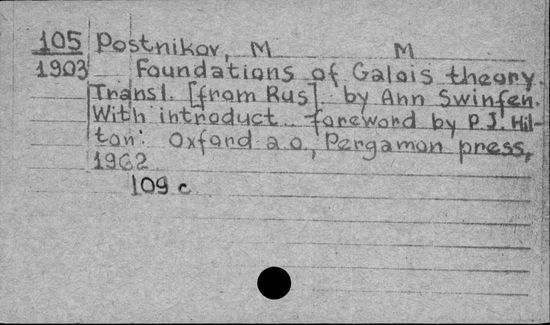 105 Postnikov, M M
1903 Foundations of Galois theory.
Transl. [from Rus]. by Ann Swinfen.
With introduct. foreword by P.J. Hil-
ton. Oxford a.o., Pergamon press,
1962
109 c